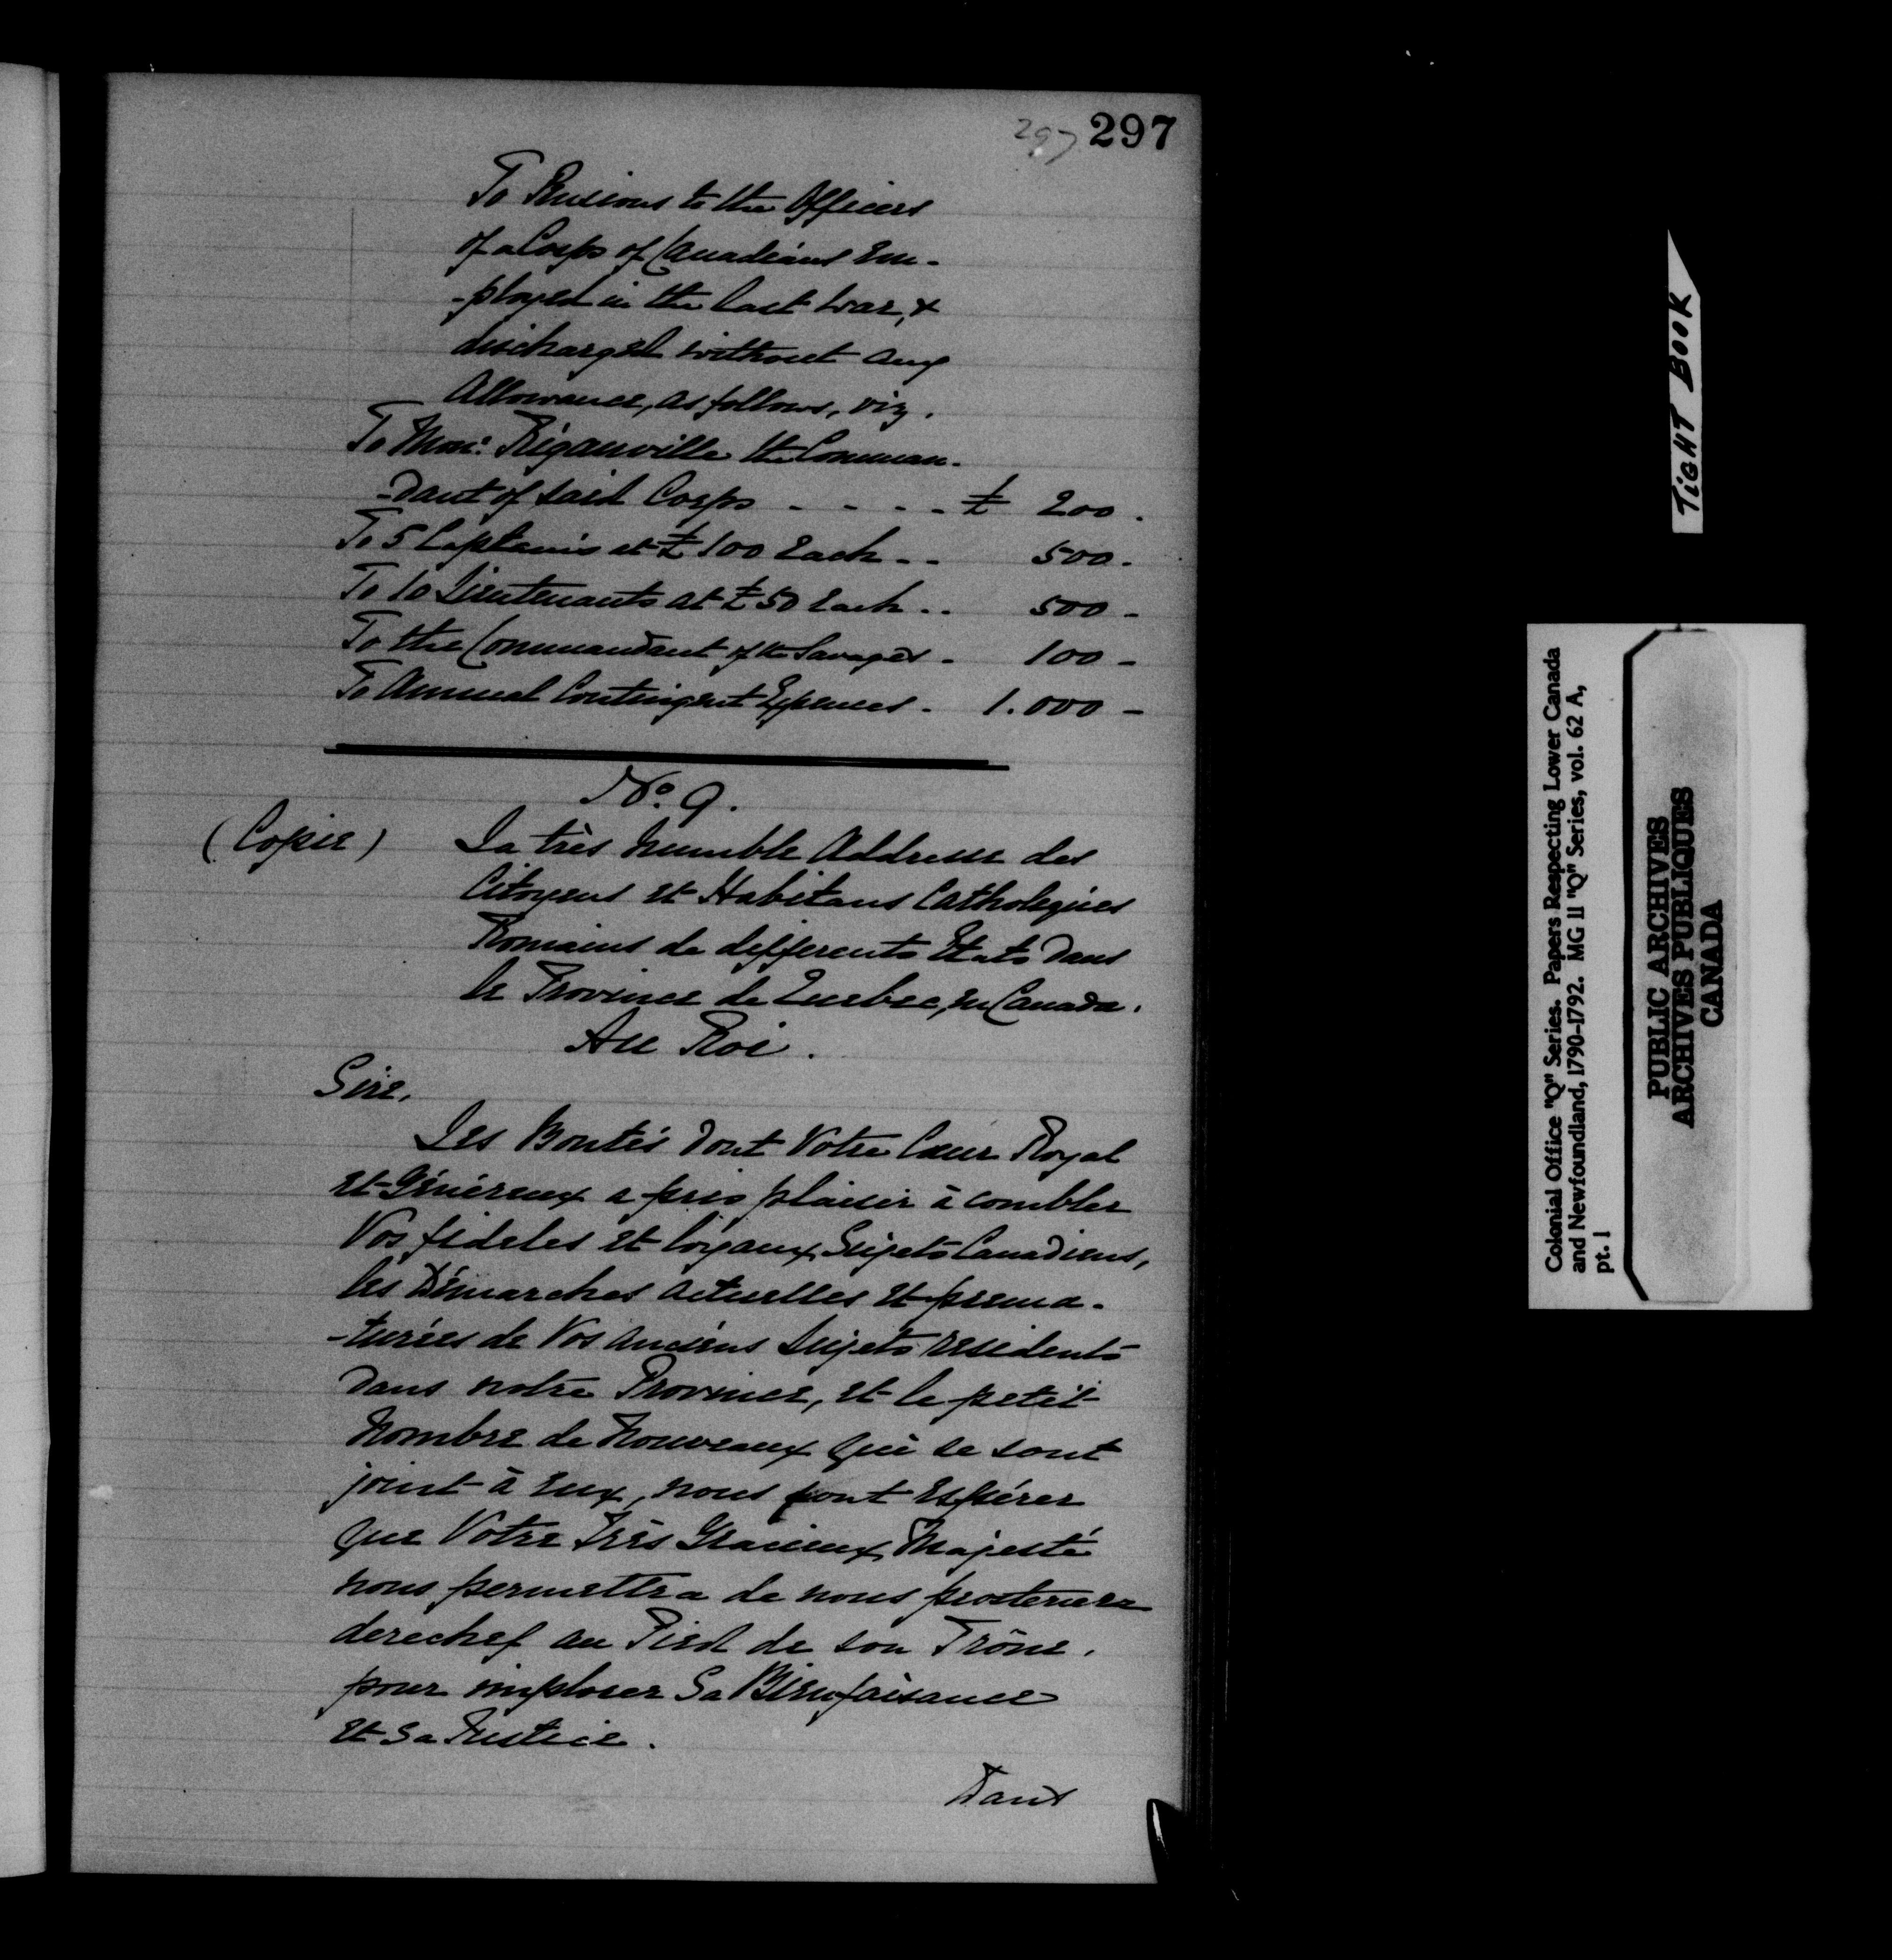 297 297
To Pensions to the Officers
of a Corps of Canadians Em-
-ployed in the last War, &
discharged without any
Allowance, as follows, viz.
To Monr. Rigauville the Comman-
-dant of said Corps - - - - £ 200.
To 5 Captains at £100 Each - - 500.
To 10 Lieutenants at £50 Each - - 500 -
To the Commandant of the Savages - 100 -
To Annual Contingent Expences - 1.000 -
No. 9.
(Copie) La très humble Addresse des
Citoyens et Habitans Catholiques
Romains de differents Etats dans
la Province de Quebec, en Canada.
Au Roi.
Sire,
Les Bontés dont Votre Cœur Royal
et Généreux a pris plaisir à combler
Vos fideles et loyaux Sujets Canadiens,
les Démarches actuelles et prema-
-turées de Vos anciens Sujets residents
dans notre Province, et le petit
Nombre de Nouveaux qui se sont
joint à eux, nous font Espérer
que Votre Très Gracieux Majesté
nous permettra de nous prosterner
derechef au Pied de son Trône,
pour implorer Sa Bienfaisance
et Sa Justice.
Dans
TIGHT BOOK
Colonial Office "Q" Series. Papers Respecting Lower Canada
and Newfoundland, 1790-1792. MG 11 "Q" Series, vol. 62 A,
pt. 1
PUBLIC ARCHIVES
ARCHIVES PUBLIQUES
CANADA